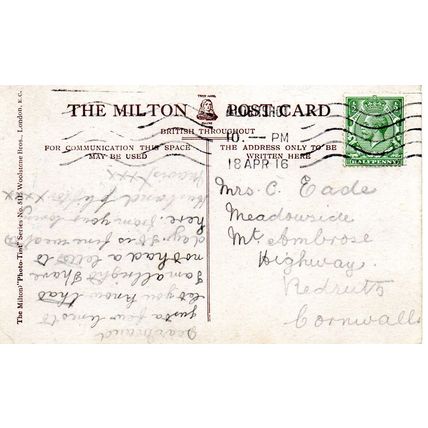 THE MILTON POST CARD
BRITISH THROUGHOUT
FOR COMMUNICATION THIS SPACE
MAY BE USED
THE ADDRESS ONLY TO BE
WRITTEN HERE
10 - PM
18 APR 16
HALFPENNY
Mrs. C. Eade
Meadowside
Mt. Ambrose
Highway.
Redruth
Cornwall
The Milton "Photo-Tint" Series No. Woolstone Bros., London, E.C.
Dear Maud
Just a few lines to
let you know that
I am alright I have
not had a letter to
day. It is fine weather
here. from your loving
Husband
xxx